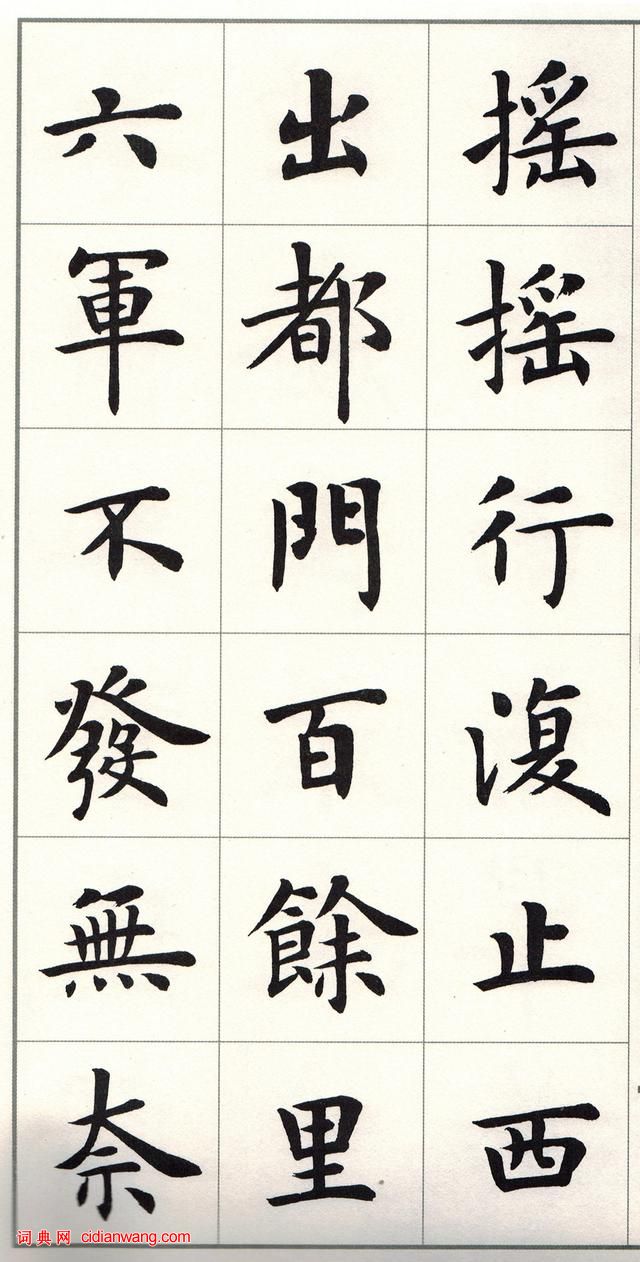 摇摇行復止西
出都門百餘里
六軍不發無奈
词典网 cidianwang.com